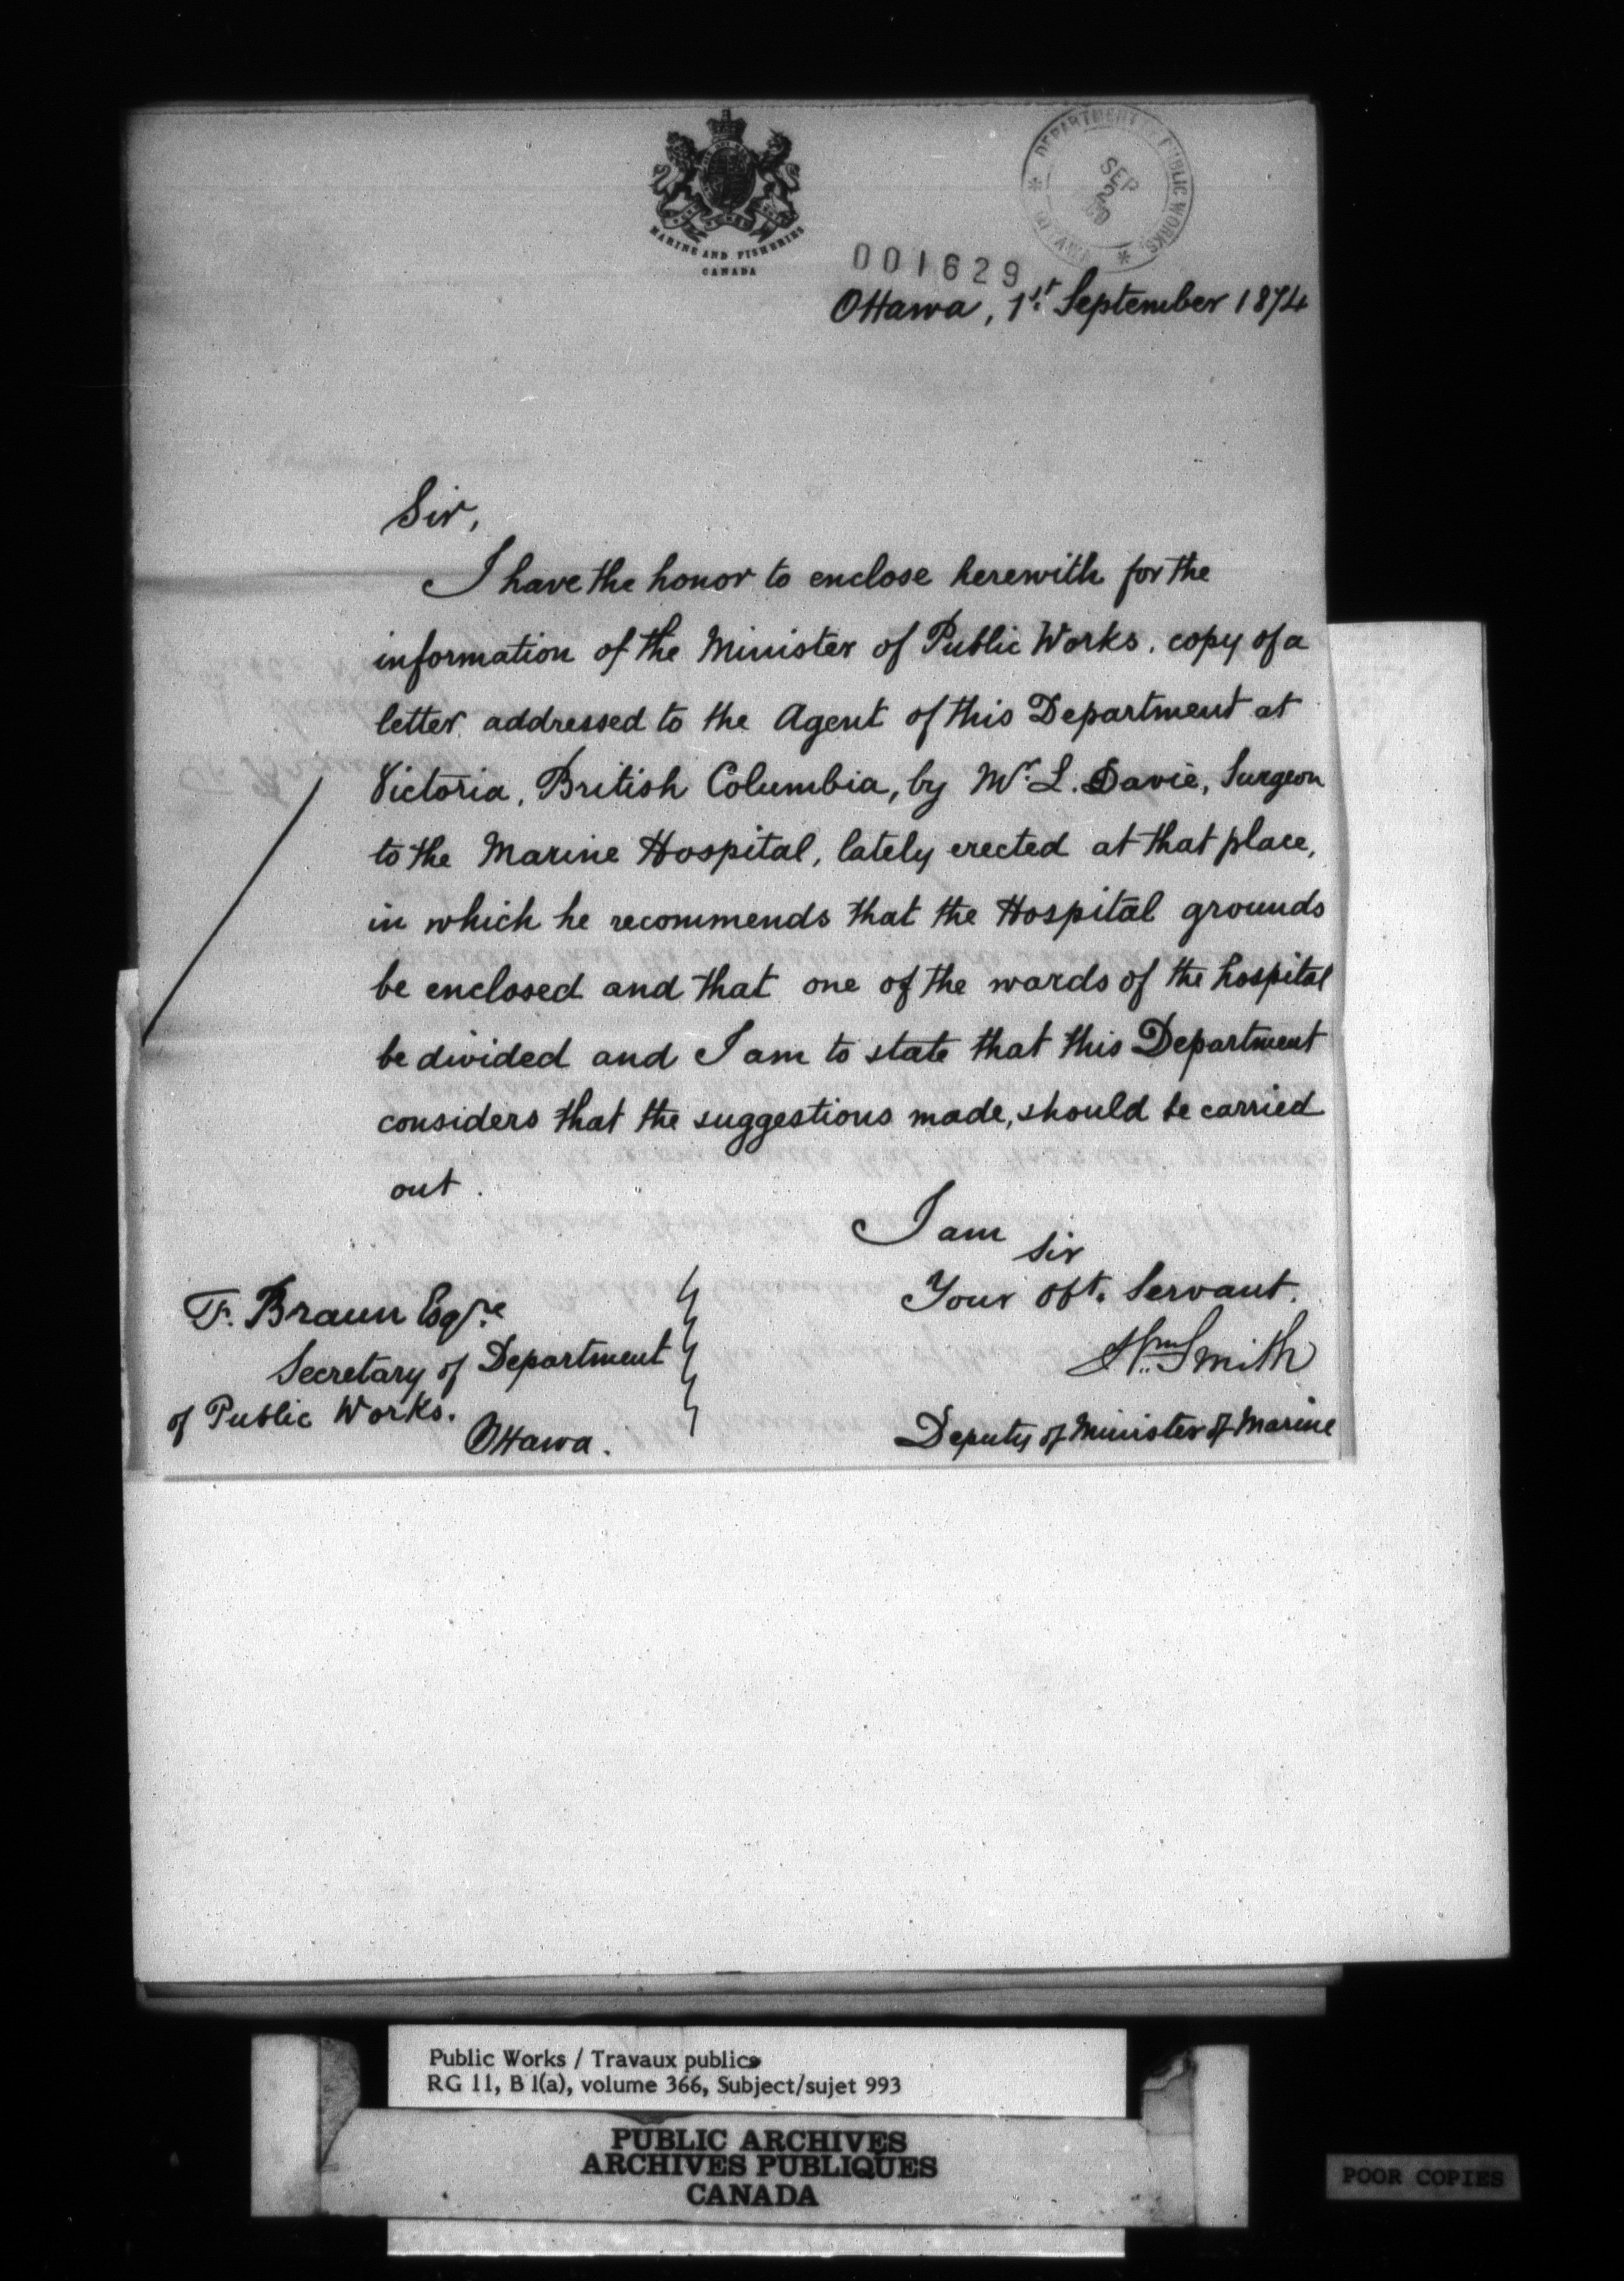 MARINE AND FISHERIES
CANADA
DEPARTMENT OF PUBLIC WORKS
SEP
2
OTTAWA
001629
Ottawa, 1st September 1874
Sir,
I have the honor to enclose herewith for the
information of the Minister of Public Works, copy of a
letter addressed to the Agent of this Department at
Victoria, British Columbia, by Mr. L. Davie, Surgeon
to the Marine Hospital, lately erected at that place,
in which he recommends that the Hospital grounds
be enclosed and that one of the wards of the hospital
be divided and I am to state that this Department
considers that the suggestions made, should be carried
out.
I am
Sir
Your Obt. Servant.
Wm Smith
Deputy of Minister of Marine
F. Braun Esqre
Secretary of Department
of Public Works.
Ottawa.
Public Works / Travaux publics
RG 11, B 1(a), volume 366, Subject/sujet 993
PUBLIC ARCHIVES
ARCHIVES PUBLIQUES
CANADA
POOR COPIES